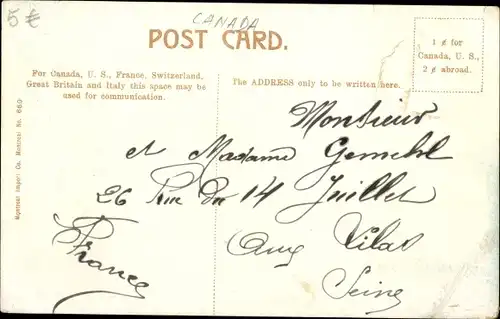 5 €
CANADA
POST CARD.
1 ¢ for
Canada, U. S.,
2 ¢ abroad.
For Canada, U. S., France, Switzerland,
Great Britain and Italy this space may be
used for communication.
The ADDRESS only to be written here.
Montreal Import Co. Montreal No. 660
Monsieur
et Madame
26 Rue du 14 Juillet
aux Lilas
Seine
France